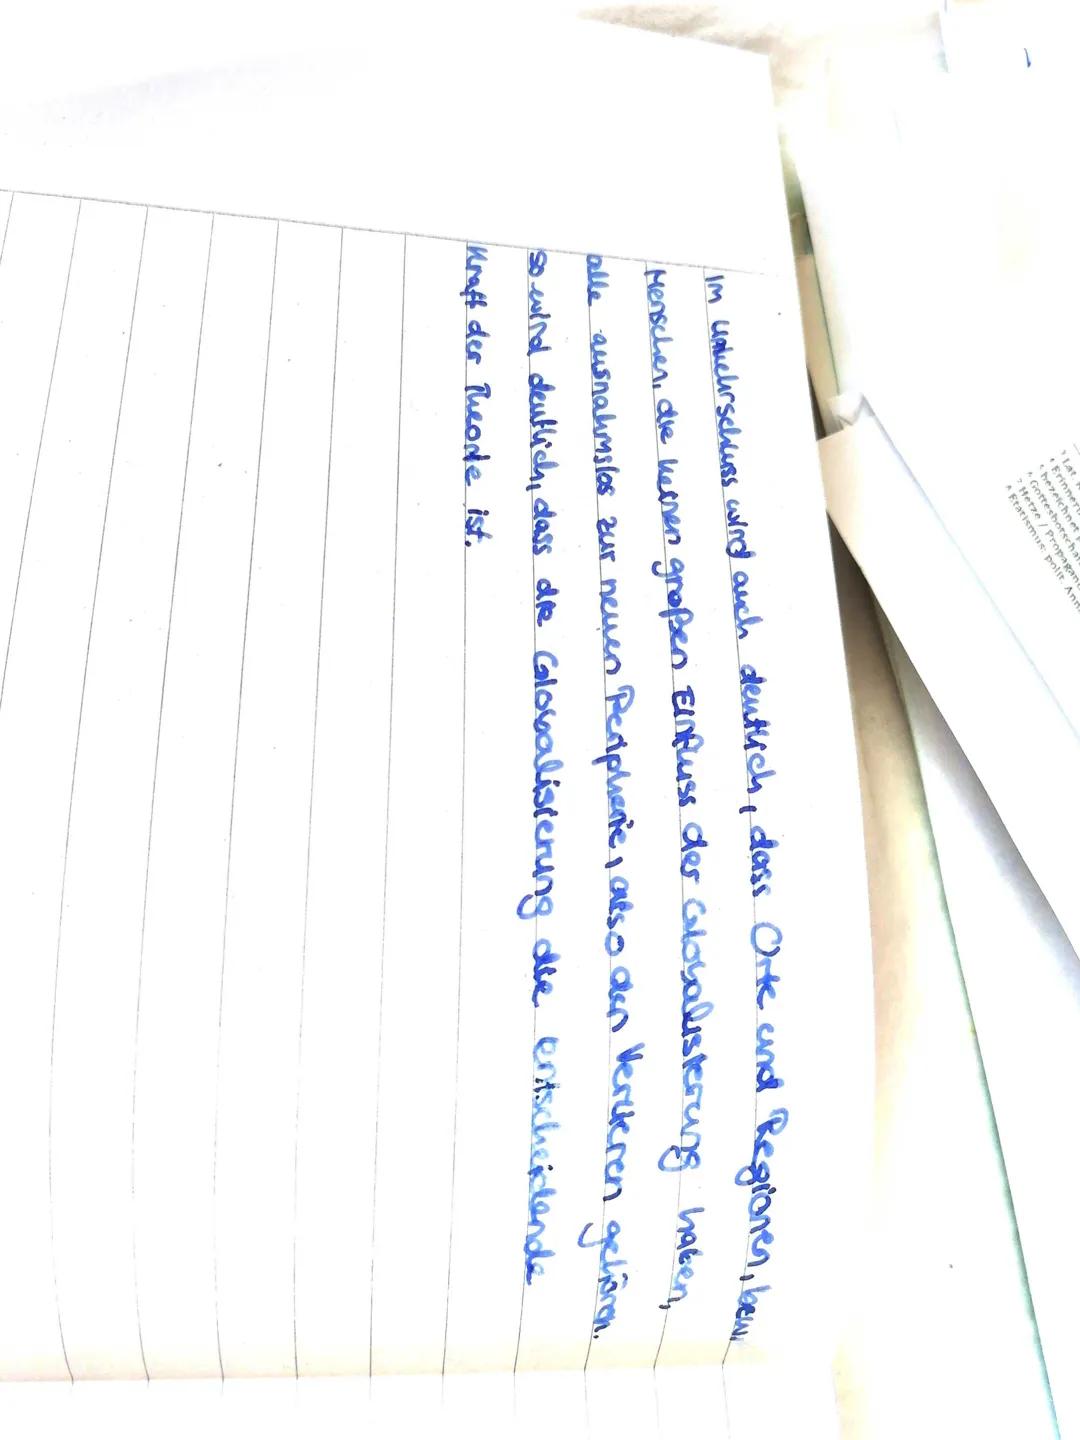 Im Umkehrschluss wird auch deutlich, dass Orte und Regionen, bzw.
Menschen, die keinen großen Einfluss der Globalisierung haben,
alle ausnahmslos zur neuen Peripherie, also den Verlierern gehören.
so wird deutlich, dass die Globalisierung die entscheidende
Kraft der Theorie ist.
Erinneru
bezeichnet
Gottesbotschaf
Hetze / Propagan
Etatismus: polit. Ann